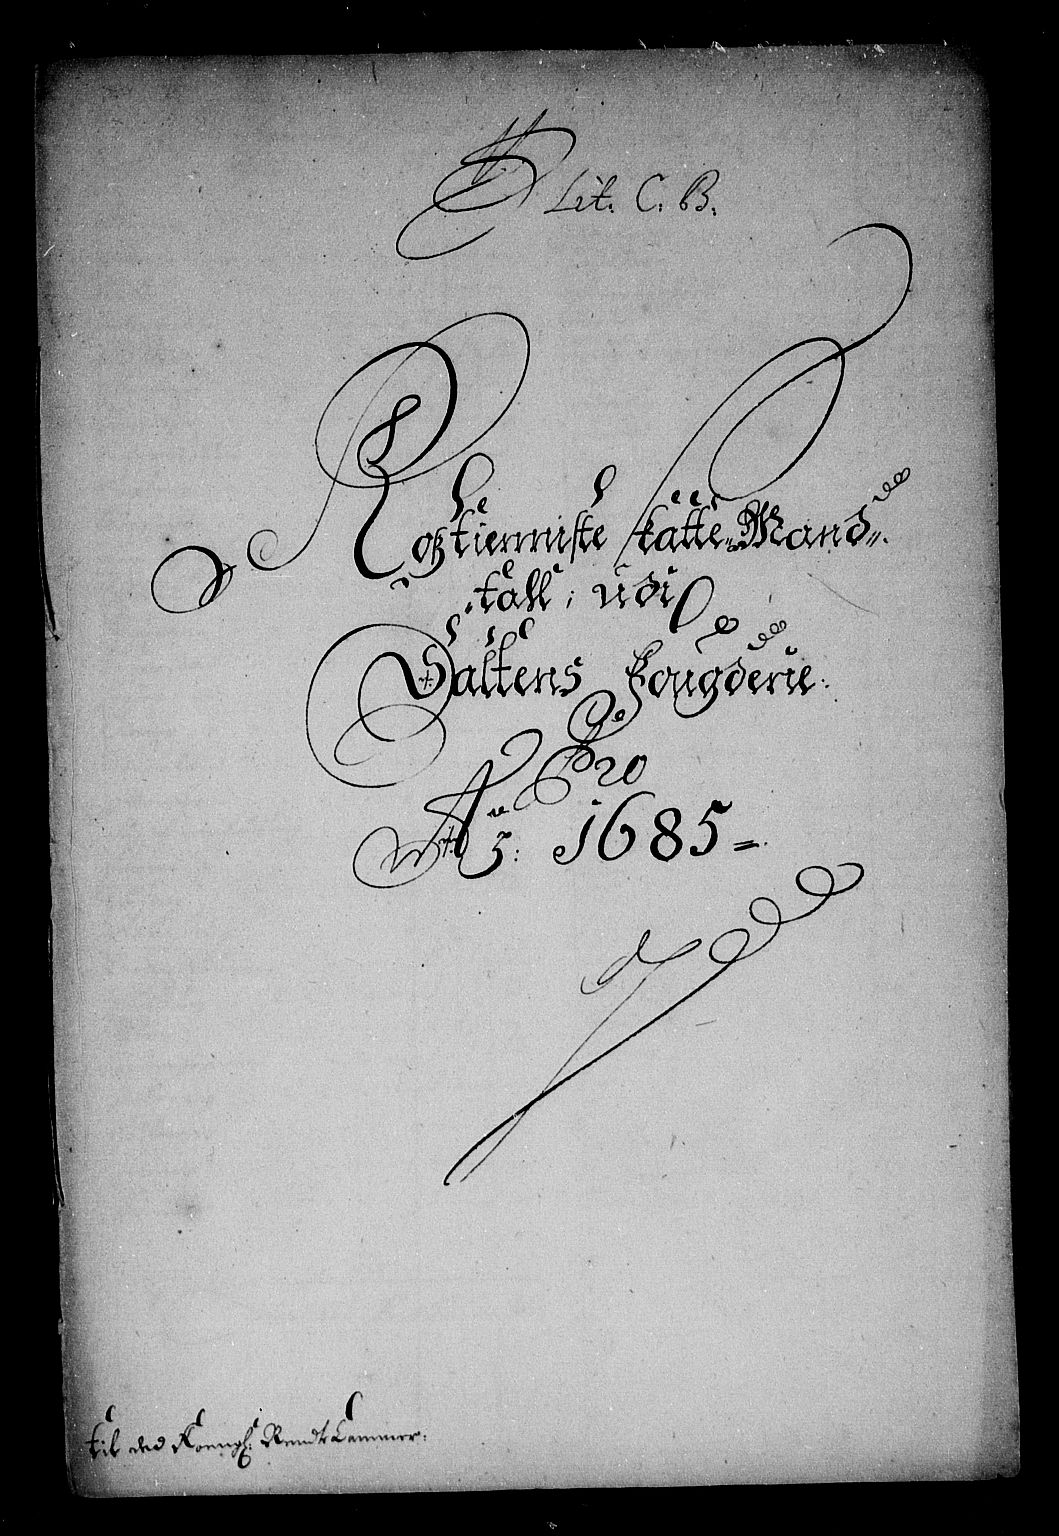 Lit: C: B:
Roßtienniste skatte Mand
tall; udi
Saltens Fougderie:
Pro
A:º 1685=
til ded Koengl: Rendt Cammer: